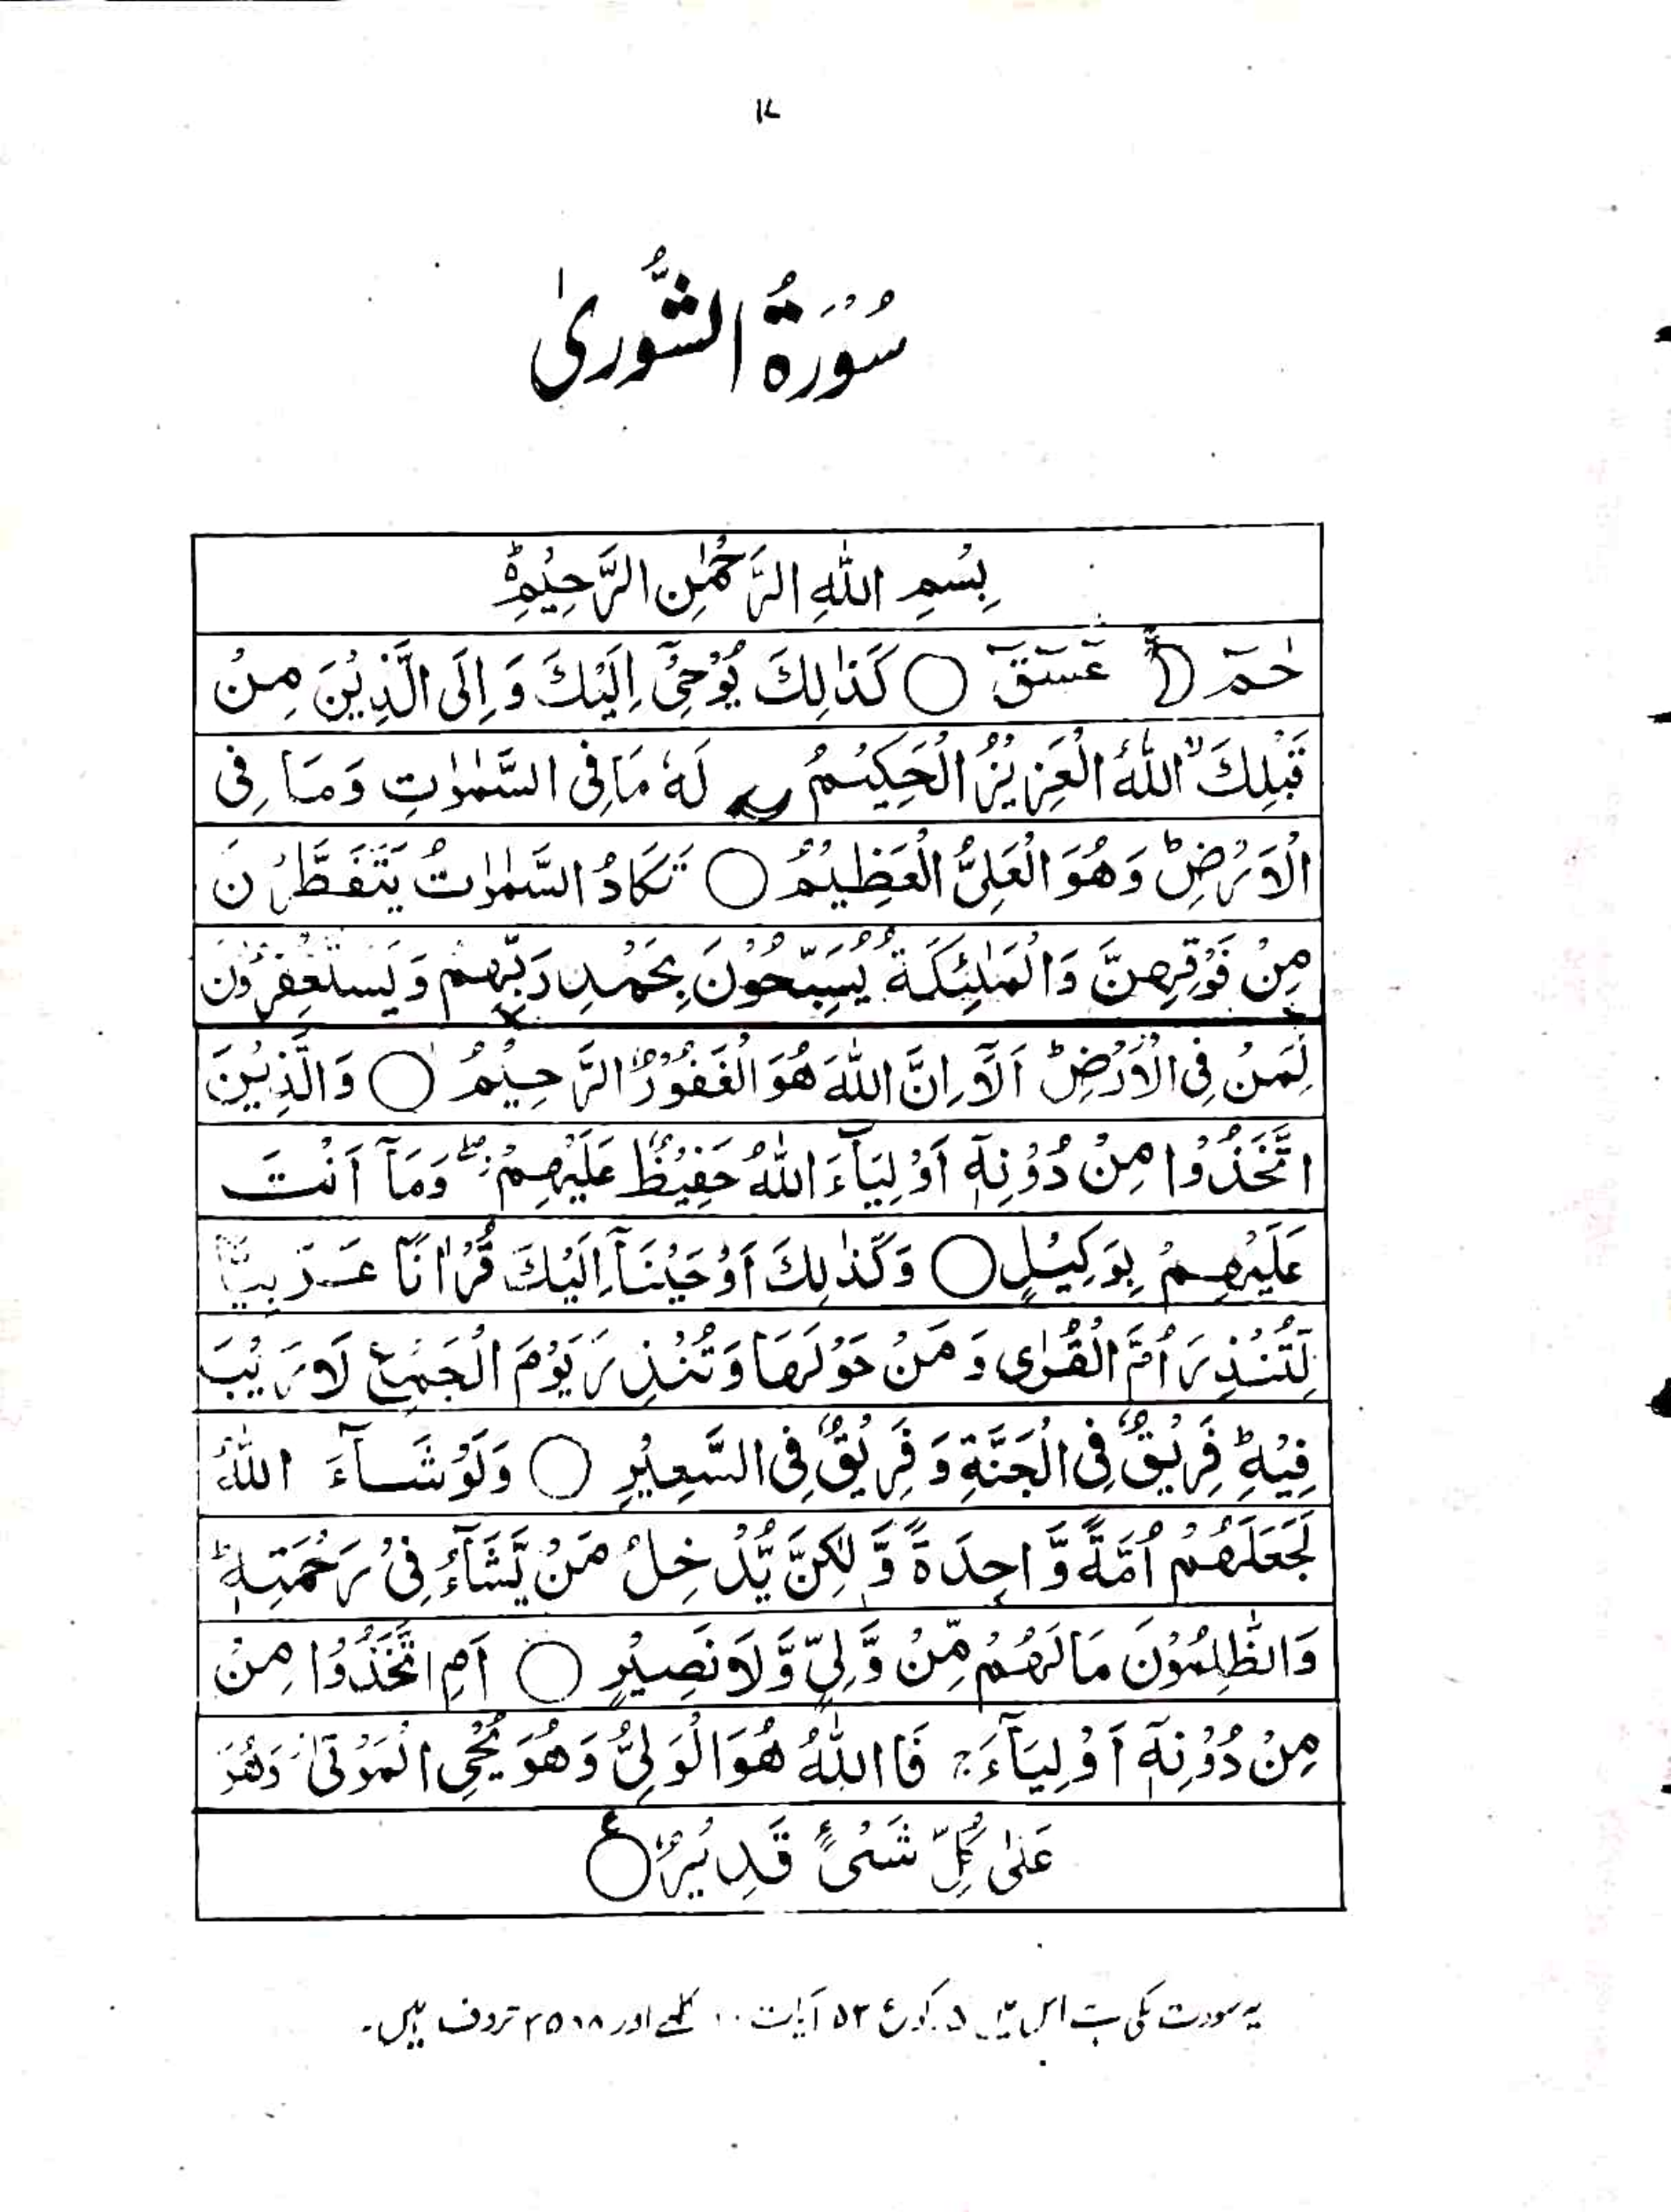 سُوْرَةُ الشُّورىٰ
بِسْمِ اللّٰهِ الرَّحْمٰنِ الرَّحِيْمِ ؕ
حٰمٓ ۚ عٓسٓقٓ ○ كَذٰلِكَ يُوْحِىْٓ اِلَيْكَ وَ اِلَى الَّذِيْنَ مِنْ
قَبْلِكَ ۙ اللّٰهُ الْعَزِيْزُ الْحَكِيْمُ لَهٗ مَا فِى السَّمٰوٰتِ وَمَا فِى
الْاَرْضِ ؕ وَهُوَ الْعَلِىُّ الْعَظِيْمُ ○ تَكَادُ السَّمٰوٰتُ يَتَفَطَّرْنَ
مِنْ فَوْقِهِنَّ وَالْمَلٰٓئِكَةُ يُسَبِّحُوْنَ بِحَمْدِ رَبِّهِمْ وَيَسْتَغْفِرُوْنَ
لِمَنْ فِى الْاَرْضِ ؕ اَلَآ اِنَّ اللّٰهَ هُوَ الْغَفُوْرُ الرَّحِيْمُ ○ وَالَّذِيْنَ
اتَّخَذُوْا مِنْ دُوْنِهٖٓ اَوْلِيَآءَ اللّٰهُ حَفِيْظٌ عَلَيْهِمْ ۖ وَمَآ اَنْتَ
عَلَيْهِمْ بِوَكِيْلٍ ○ وَكَذٰلِكَ اَوْحَيْنَآ اِلَيْكَ قُرْاٰنًا عَرَبِيًّا
لِّتُنْذِرَ اُمَّ الْقُرٰى وَ مَنْ حَوْلَهَا وَتُنْذِرَ يَوْمَ الْجَمْعِ لَا رَيْبَ
فِيْهِ ؕ فَرِيْقٌ فِى الْجَنَّةِ وَ فَرِيْقٌ فِى السَّعِيْرِ ○ وَلَوْ شَآءَ اللّٰهُ
لَجَعَلَهُمْ اُمَّةً وَّاحِدَةً وَّ لٰكِنَّ يُّدْخِلُ مَنْ يَّشَآءُ فِىْ رَحْمَتِهٖ ؕ
وَالظّٰلِمُوْنَ مَا لَهُمْ مِّنْ وَّلِىٍّ وَّلَا نَصِيْرٍ ○ اَمِ اتَّخَذُوْا مِنْ
مِنْ دُوْنِهٖٓ اَوْلِيَآءَ ۚ فَا اللّٰهُ هُوَ الْوَلِىُّ وَهُوَ يُحْىِ الْمَوْتٰى وَهُوَ
عَلٰى كُلِّ شَىْءٍ قَدِيْرٌ ○ ع
یہ سورت مکی ہے اس میں ۵ رکوع ۵۳ آیات کلمے اور حروف ہیں۔